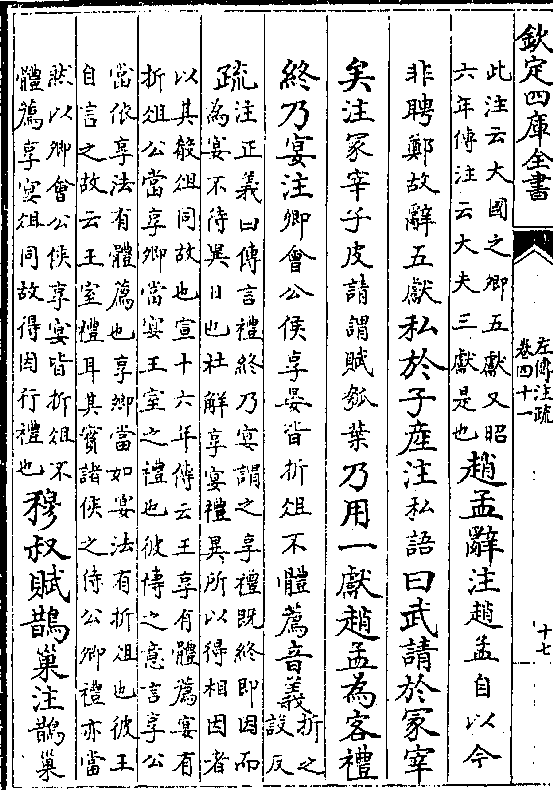 欽定四庫全書
左傳注疏
卷四十一
十七
此注云大國之卿五獻又昭
六年傳注云大夫三獻是也
趙孟辭注趙孟自以今
非聘鄭故辭五獻私於子產注私語曰武請於冢宰
矣注冢宰子皮請謂賦瓠葉乃用一獻趙孟為客禮
終乃宴注卿會公侯享宴皆折俎不體薦音義
折之
設反
疏
注正義曰傳言禮終乃宴謂之享禮既終即因而
為宴不待異日也杜解享宴禮異所以得相因者
以其殽俎同故也宣十六年傳云王享有體薦宴有
折俎公當享卿當宴王室之禮也彼傳之意言享公
當依享法有體薦也享卿當如宴法有折俎也彼王
自言之故云王室禮耳其實諸侯之待公卿禮亦當
然以卿會公侯享宴皆折俎不
體薦享宴俎同故得因行禮也
穆叔賦鵲巢注鵲巢